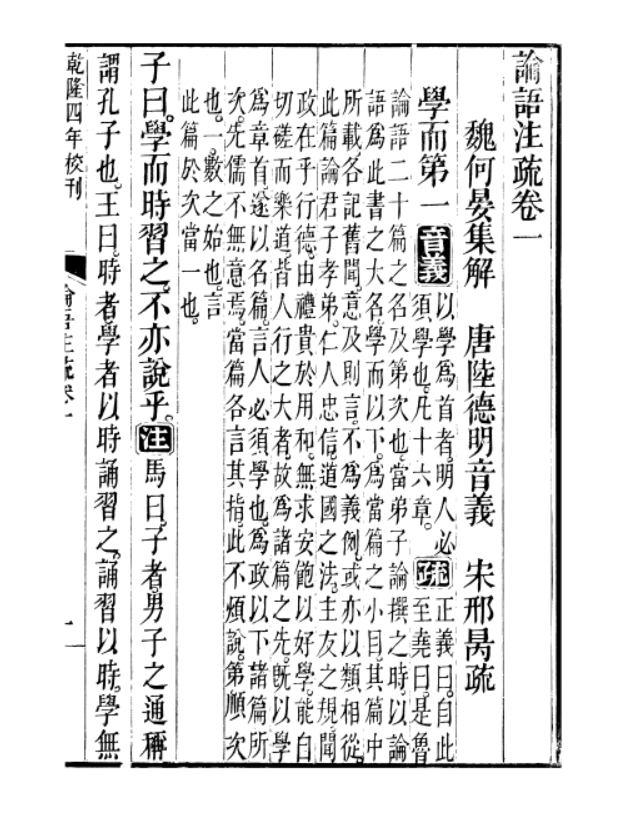 論語注疏卷一
魏何晏集解　唐陸德明音義　宋邢昺疏
學而第一 音義 以學爲首者。明人必須學也。凡十六章。 疏 正義曰。自此至堯曰。是魯
論語二十篇之名及第次也。當弟子論撰之時。以論
語爲此書之大名。學而以下。爲當篇之小目。其篇中
所載。各記舊聞。意及則言。不爲義例。或亦以類相從。
此篇論君子孝弟。仁人忠信。道國之法。主友之規。聞
政在乎行德。由禮貴於用和。無求安飽以好學。能自
切磋而樂道。皆人行之大者。故爲諸篇之先。既以學
爲章首。遂以名篇。言人必須學也。爲政以下。諸篇所
次。先儒不無意焉。當篇各言其指。此不煩說。第順次
也。一。數之始也。言
此篇於次當一也。
子曰。學而時習之。不亦說乎。注 馬曰。子者。男子之通稱
謂孔子也。王曰。時者。學者以時誦習之。誦習以時。學無
乾隆四年校刊　論語注疏卷一　一